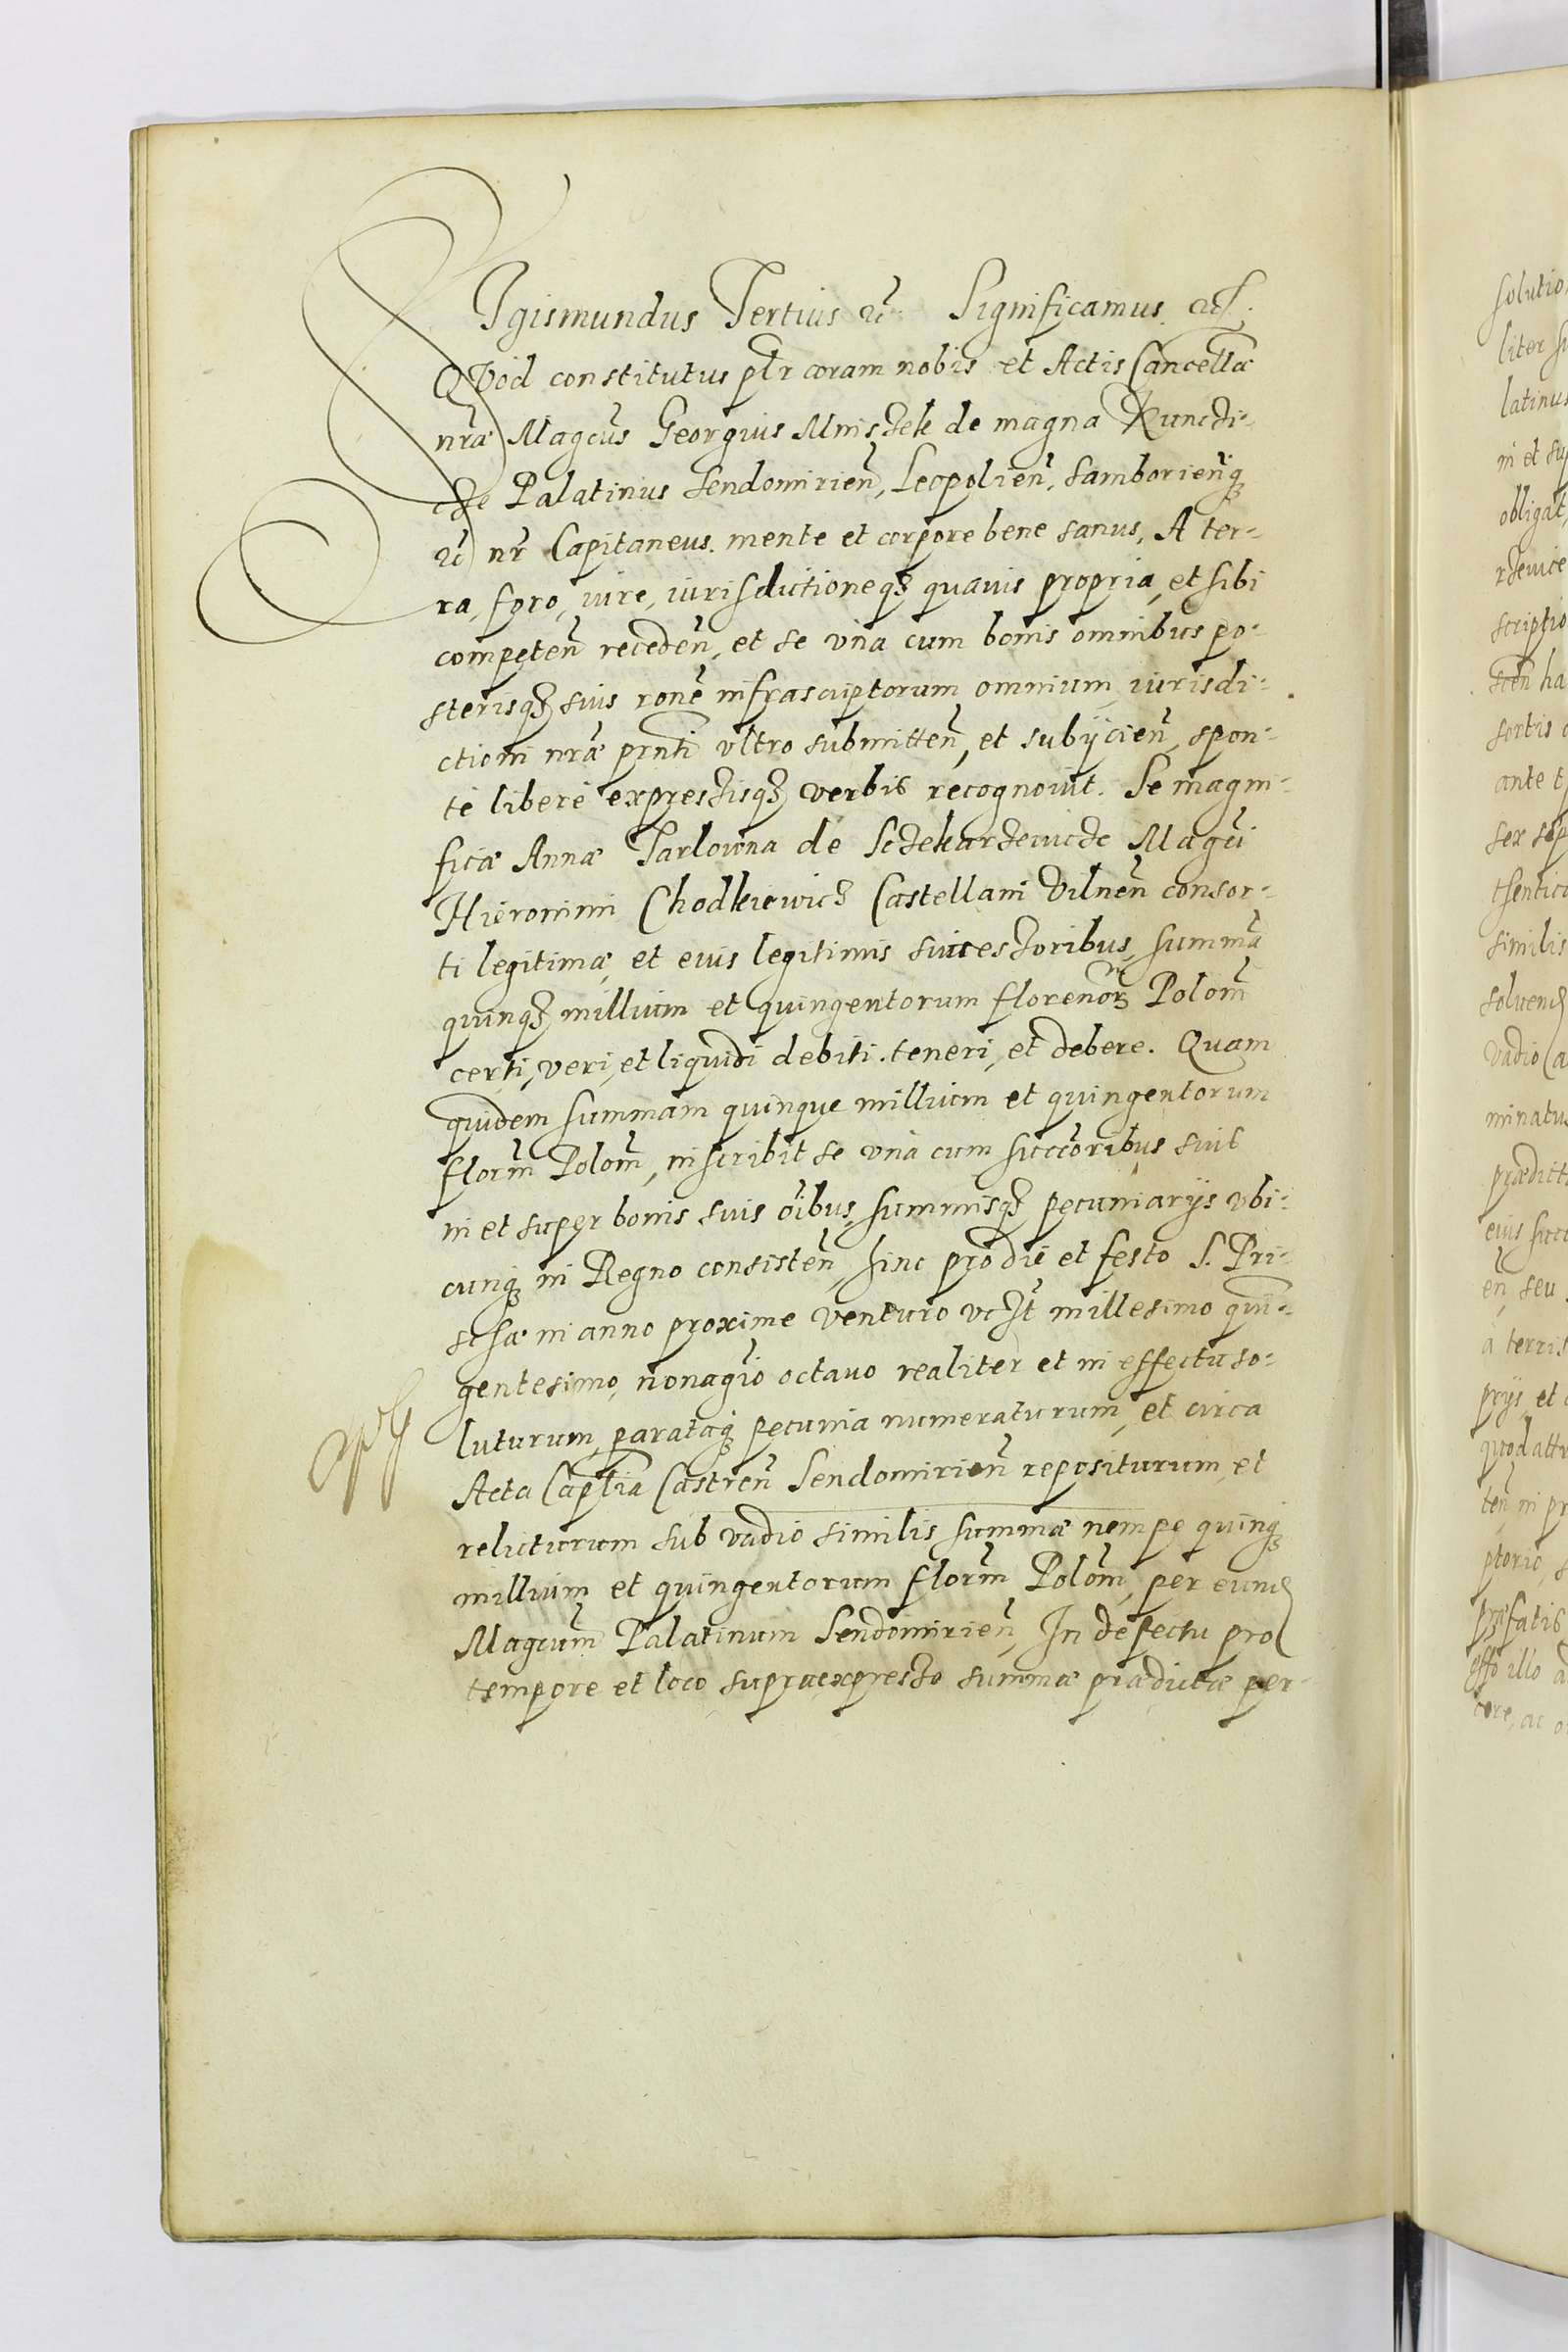 Sigismundus Tertius etc̃ Significamus etc.
QVod constitutus pl̃r coram nobis et Actis Cancellã
nr̃æ Magcũs Georgius Mniszek de magna Kunczi-
cze Palatinus Sendomirieñ, Leopolieñ, Samborieñq3
etc̃ nr̃ Capitaneus. mente et corpore bene sanus, A ter-
ra, foro, iure, iurisdictioneq3 quauis propria, et sibi
competeñ recedeñ, et se vna cum bonis omnibus po-
sterisq3 suis rone̅ infrascriptorum omnium iurisdi-
ctioni nr̃æ prñti vltro submitteñ, et subijcieñ, spon-
te libere expressisq3 verbis recognouit. Se magni-
ficæ Annæ Tarlowna de Sczekarzewicze Magc̃i
Hieronimi Chodkiewicz Castellani Vilneñ consor-
ti legitimæ, et eius legitimis successoribus, summã
quinq3 millium et quingentorum florenorꝝ Polom̃
certi, veri, et liquidi debiti. teneri, et debere. Quam
quidem summam quinque millium et quingentorum
florm̃ Polom̃, inscribit se vna cum succc̃oribus suis
in et super bonis suis oĩbus, summisq3 pecuniarijs vbi-
cunq3 in Regno consisteñ, hinc pro die et festo S. Pri-
scæ in anno proxime venturo vcz̃t millesimo quin-
gentesimo, nonagĩo octauo realiter et in effectu so-
luturum, parataq3 pecunia numeraturum, et circa
Acta Capt̃lia Castreñ Sendomirieñ repositurum et
relicturum sub vadio similis summæ nempe quinq3
millium et quingentorum florm̃ Polom̃, per eund̃
Magcum̃ Palatinum Sendomirieñ, In defectu pro
tempore et loco supraexpresso summæ prædictæ per-
solutio
liter
latinus
in et su
obligat,
rzewice
scriptio
ha
sortis
ante t
sex sep
similis
soluend
vadio Ca
minatus
prædict
eius succ
eñ, seu
a terris
prijs et
quod att
teñ in pr
ptorio,
præfatis
illo a